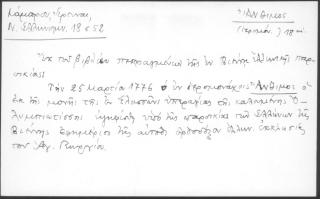 Λάμπρου, Ἔρευναι,
Ν. Ἑλληνομν. 18 σ 52
Ἄνθιμος
(ἱερομόν.) 18 αἰ.
Ἐκ τοῦ βιβλίου πεπραγμένων τῆς ἐν Βιέννῃ ἑλληνικῆς παρ
οικίας:
Τὴν 25 Μαρτίου 1776 ὁ ἐν ἱερομονάχοις Ἄνθιμος ὁ
ἐκ τῆς μονῆς τῆς ἐν Ἐλασσῶνι ὑπεραγίας τῆς καλουμένης Ὀ
λυμπιωτίσσης ἐψηφίσθη ὑπὸ τῆς παροικίας τῶν Ἑλλήνων τῆς
Βιέννης ἐφημέριος τῆς αὐτόθι ὀρθοδόξου ἑλλην. ἐκκλησίας
τοῦ Ἁγ. Γεωργίου.